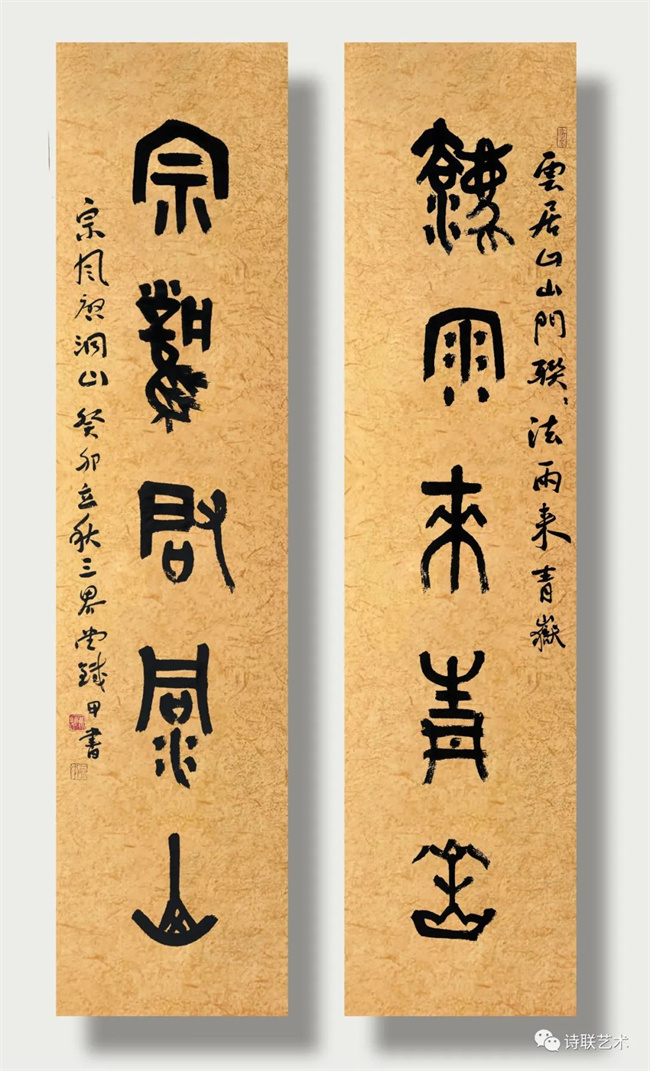 雲居山山門聯：法雨来青嶽
灋雨來青岳
宗風启洞山
宗風启洞山 癸卯立秋三界堂鐵甲書
诗联艺术